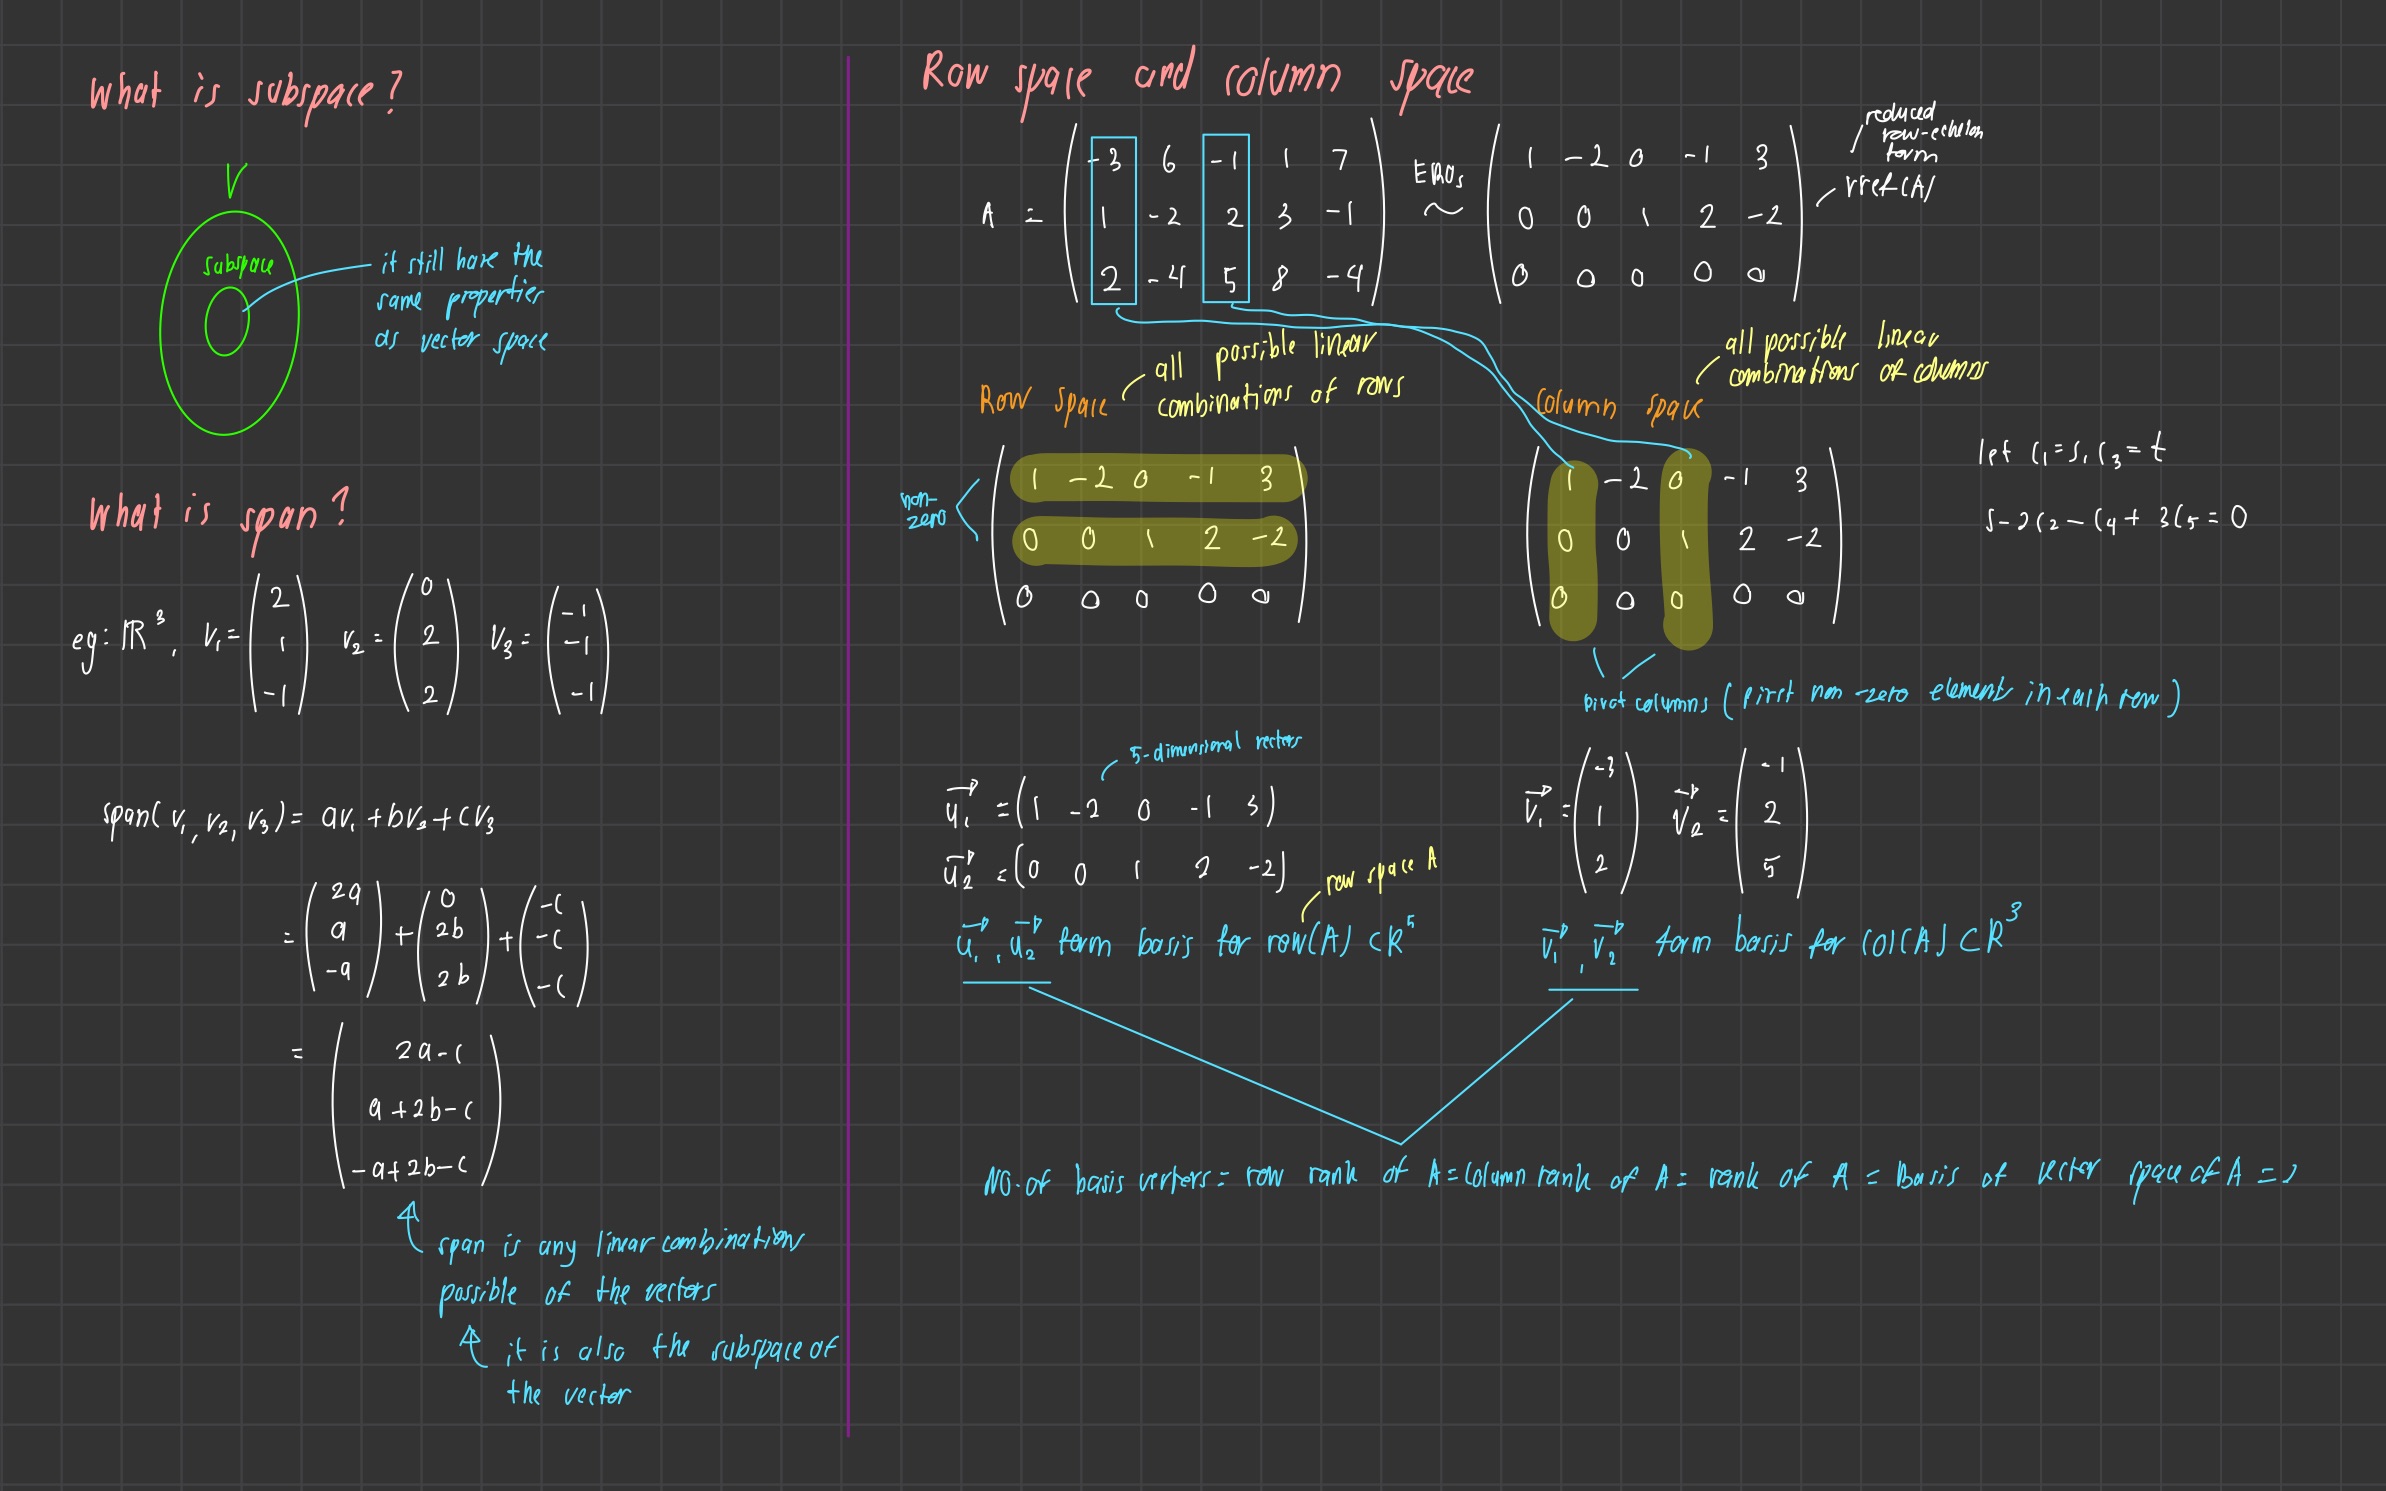 What is subspace?
V
subspace
it still have the
same properties
as vector space
What is span?
eg: ℝ³, v₁ = (2 1 -1) v₂ = (0 2 2) v₃ = (-1 -1 -1)
span(v₁, v₂, v₃) = av₁ + bv₂ + cv₃
= (2a a -a) + (0 2b 2b) + (-c -c -c)
= (2a-c
a+2b-c
-a+2b-c)
span is any linear combinations
possible of the vectors
it is also the subspace of
the vector
Row space and column space
reduced
row-echelon
form
rref(A)
A = (-3 6 -1 1 7
1 -2 2 3 -1
2 -4 5 8 -4)
EROs
~
(1 -2 0 -1 3
0 0 1 2 -2
0 0 0 0 0)
Row space
all possible linear
combinations of rows
non-
zero
(1 -2 0 -1 3
0 0 1 2 -2
0 0 0 0 0)
Column space
all possible linear
combinations of columns
(1 -2 0 -1 3
0 0 1 2 -2
0 0 0 0 0)
let c₁=s, c₃=t
s-2c₂-c₄+3c₅=0
pivot columns (first non-zero element in each row)
5-dimensional vectors
u₁ = (1 -2 0 -1 3)
u₂ = (0 0 1 2 -2)
row space A
u₁, u₂ form basis for row(A) ⊂ R⁵
v₁ = (-3 1 2) v₂ = (-1 2 5)
v₁, v₂ form basis for col(A) ⊂ R³
NO. of basis vectors = row rank of A = column rank of A = rank of A = Basis of vector space of A = 2